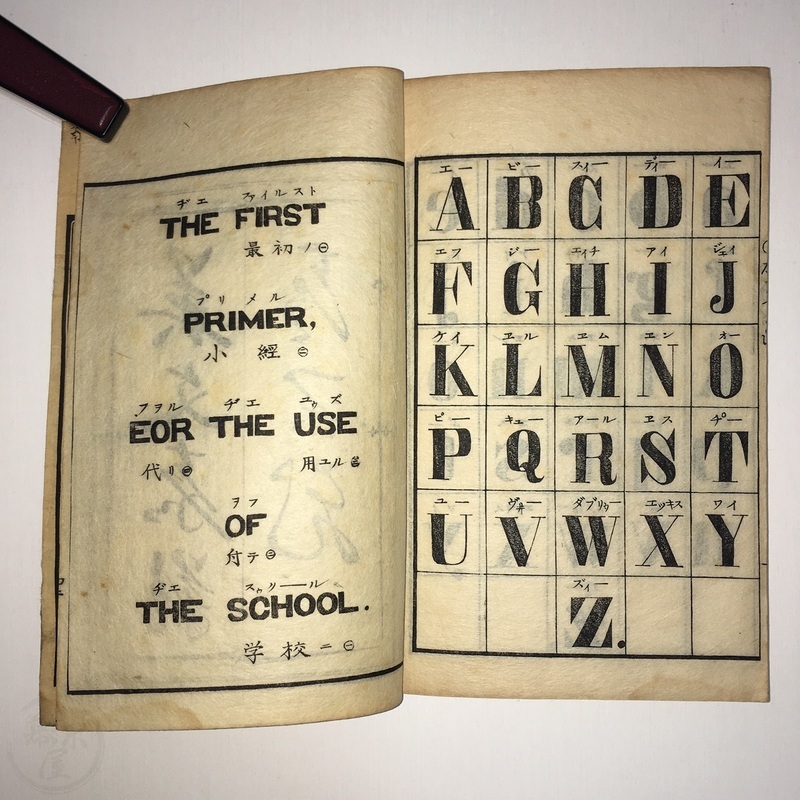 ヂエ ファイルスト
THE FIRST
最初ノ㊀
プリメル
PRIMER,
小經㊁
フヲル ヂエ ユウズ
EOR THE USE
代リ 用ユル
ヲフ
OF
付テ㊂
ヂエ スゥリール
THE SCHOOL.
学校ニ㊀
エー ビー スィー ディー イー
A B C D E
エフ ジー エイチ アイ ジェイ
F G H I J
ケイ ヱル ヱム エン オー
K L M N O
ピー キュー アール ヱス チー
P Q R S T
ユー ヴィー ダブリゥー エッキス ワイ
U V W X Y
ズィー
Z.